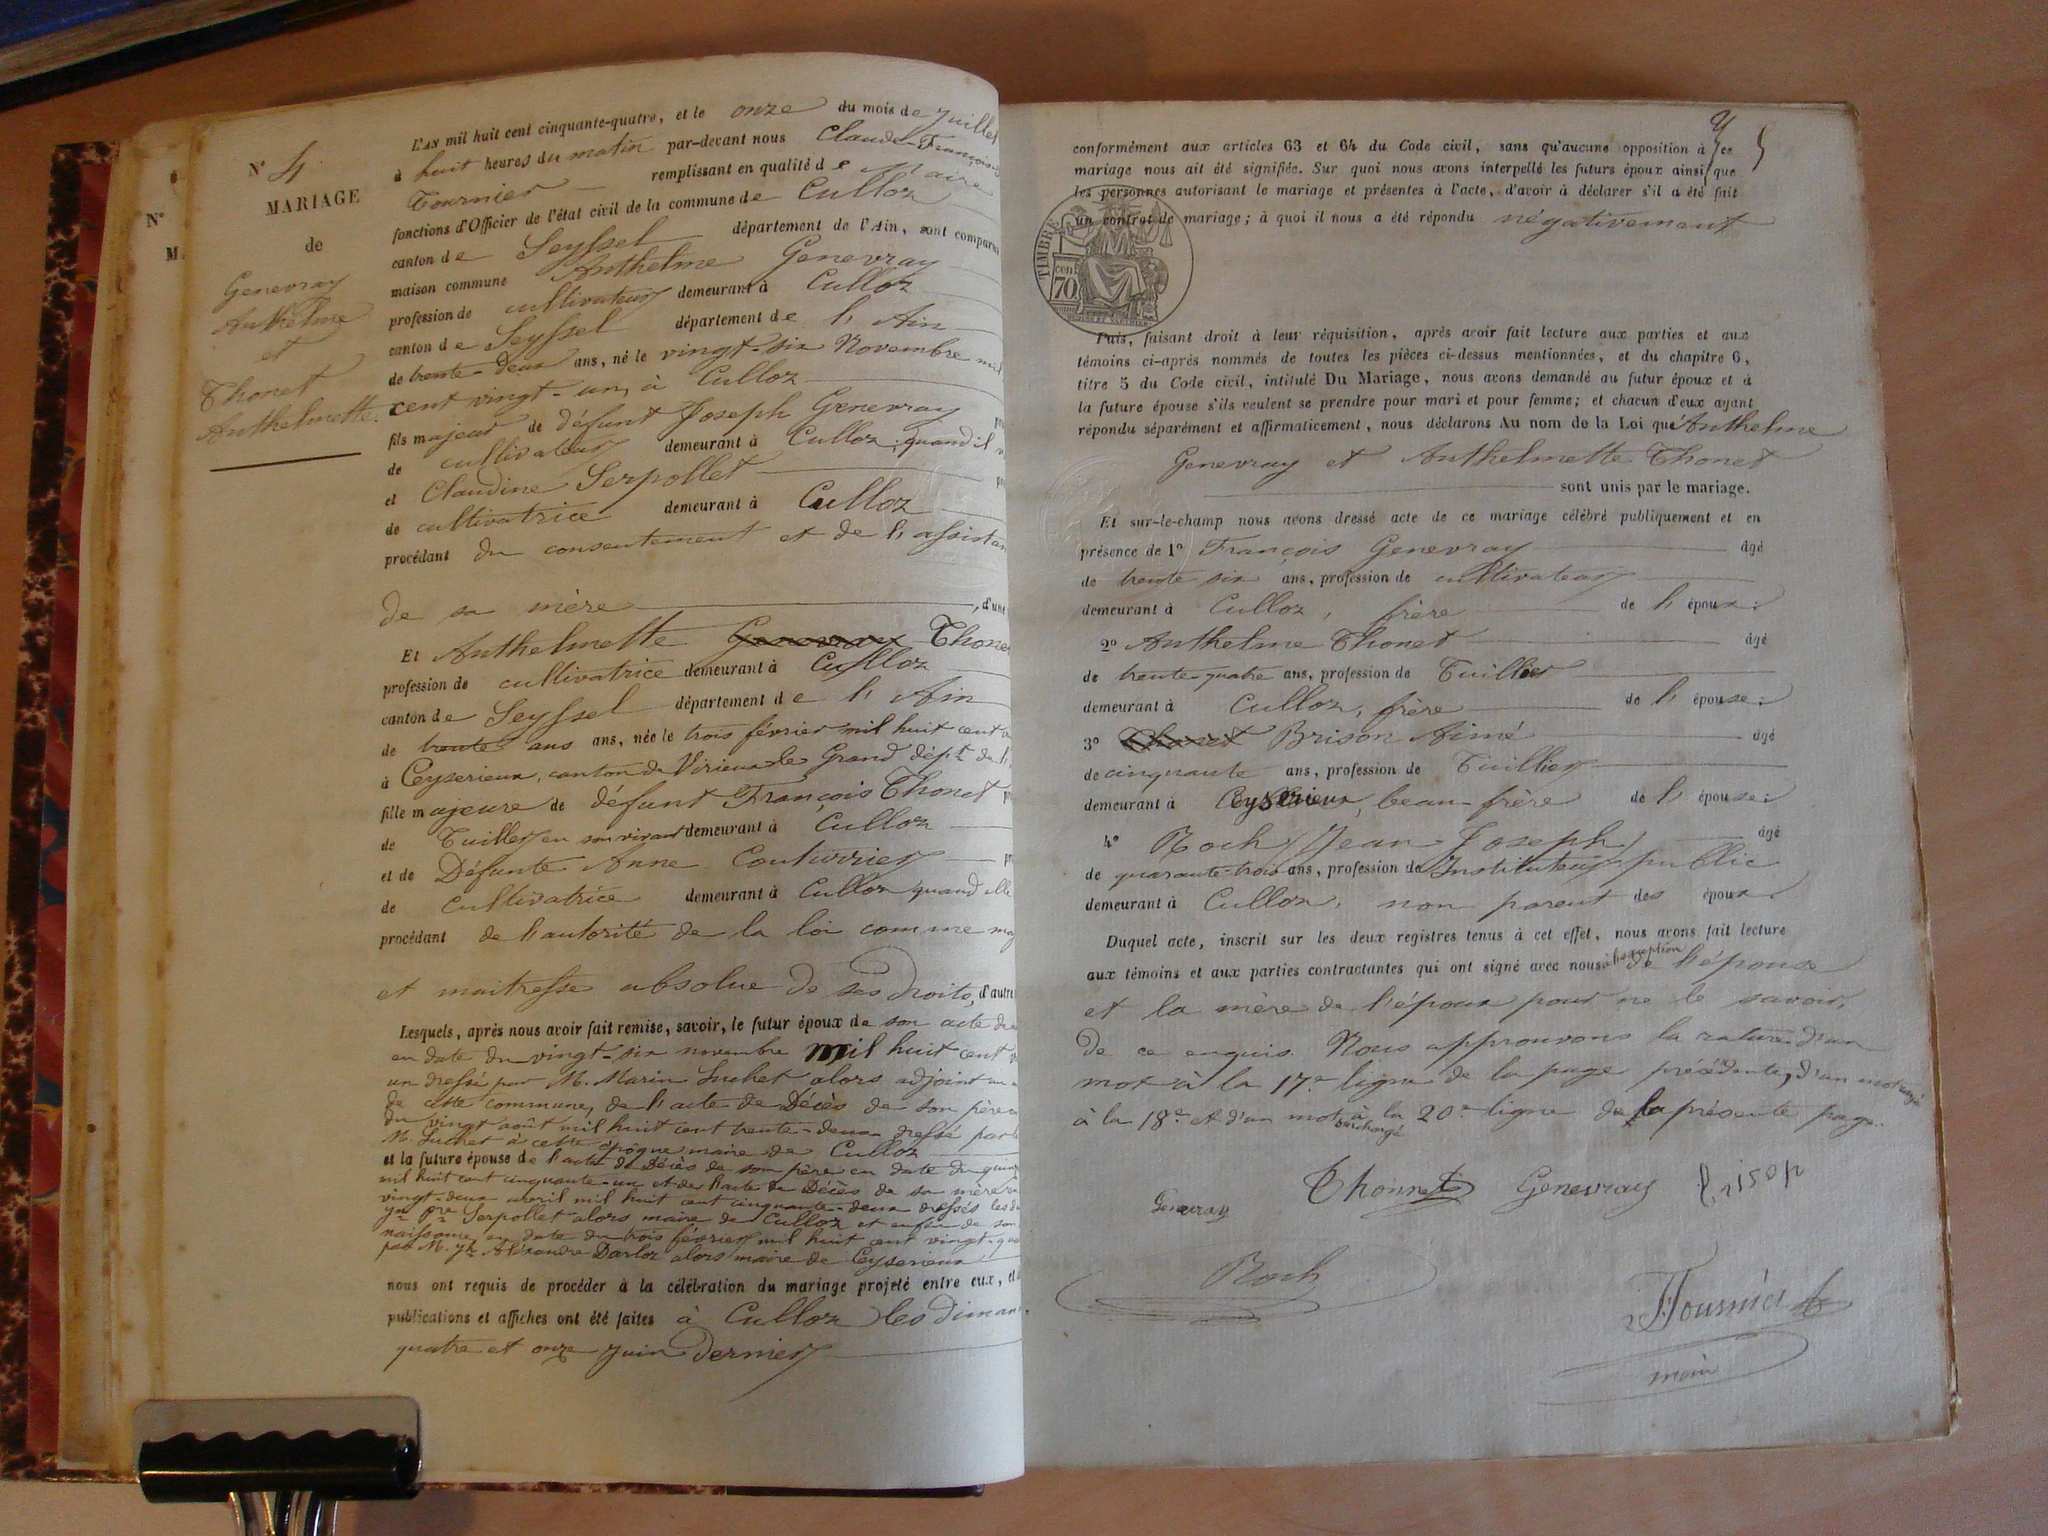 N°
M
N° 4
MARIAGE
de
Genevray
Anthelme
et
Thonet
Anthelmette.
L'AN mil huit cent cinquante-quatre, et le onze du mois de juillet
à huit heures du matin par-devant nous Claude-François
Tournier remplissant en qualité de Maire
fonctions d'Officier de l'état civil de la commune de Culloz
canton de Seyssel département de l'Ain, sont comparus
maison commune Anthelme Genevray
profession de cultivateur demeurant à Culloz
canton de Seyssel département de l'Ain
de trente-deux ans, né le vingt-six Novembre mil
cent vingt-un, à Culloz
fils majeur de défunt Joseph Genevray
de cultivateur demeurant à Culloz, quand il
et Claudine Serpollet
de cultivatrice demeurant à Culloz
procédant du consentement et de l'assistan
de sa mère , d'une
Et Anthelmette Genevray Thone
profession de cultivatrice demeurant à Culloz
canton de Seyssel département de l'Ain
de trente ans ans, née le trois février mil huit cent
à Ceyserieux, canton de Virieux le Grand dépt de l'
fille majeure de défunt François Thonet
de Tuillier en son vivant demeurant à Culloz
et de Défunte Anne Couturier
de cultivatrice demeurant à Culloz quand elle
procédant de l'autorité de la loi comme maj
et maitresse absolue de ses droits, d'autre
Lesquels, après nous avoir fait remise, savoir, le futur époux de son acte de
en date du vingt-six novembre mil huit cent
un dressé par M. Marin Suchet alors adjoint au
de cette commune, de l'acte de Décès de son père
du vingt août mil huit cent trente-deux dressé par
M. Suchet à cette époque maire de Culloz
et la future épouse de l'acte de Décès de son père en date du quinz
mil huit cent cinquante-un et de l'acte de Décès de sa mère
vingt-deux avril mil huit cent cinquante-deux dressés les
Serpollet alors maire de Culloz et enfin de son
naissance en date du trois février mil huit cent vingt-qua
par M. Alexandre Darloz alors maire de Ceyserieux
nous ont requis de procéder à la célébration du mariage projeté entre eux, et
publications et affiches ont été faites à Culloz les diman
quatre et onze juin dernier
conformément aux articles 63 et 64 du Code civil, sans qu'aucune opposition à ce
mariage nous ait été signifiée. Sur quoi nous avons interpellé les futurs époux ainsi que
les personnes autorisant le mariage et présentes à l'acte, d'avoir à déclarer s'il a été fait
un contrat de mariage; à quoi il nous a été répondu négativement
TIMBRE
70 cent
Puis, faisant droit à leur réquisition, après avoir fait lecture aux parties et aux
témoins ci-après nommés de toutes les pièces ci-dessus mentionnées, et du chapitre 6,
titre 5 du Code civil, intitulé Du Mariage, nous avons demandé au futur époux et à
la future épouse s'ils veulent se prendre pour mari et pour femme; et chacun d'eux ayant
répondu séparément et affirmaticement, nous déclarons Au nom de la Loi que Anthelme
Genevray et Anthelmette Thonet
sont unis par le mariage.
Et sur-le-champ nous avons dressé acte de ce mariage célébré publiquement et en
présence de 1° François Genevray âgé
de trente six ans, profession de cultivateur
demeurant à Culloz, frère de l'époux:
2° Anthelme Thonet âgé
de trente-quatre ans, profession de Tuillier
demeurant à Culloz, frère de l'épouse:
3° Thonet Brison Aimé âgé
de cinquante ans, profession de Tuillier
demeurant à Ceyserieux, beau-frère de l'épouse:
4° Roch Jean Joseph âgé
de quarante-trois ans, profession de Instituteur public
demeurant à Culloz, non parent des époux.
Duquel acte, inscrit sur les deux registres tenus à cet effet, nous avons fait lecture
aux témoins et aux parties contractantes qui ont signé avec nous à l'exception de l'épouse
et la mère de l'époux pour ne le savoir,
de ce enquis. Nous approuvons la rature d'un
mot à la 17e ligne de la page précédente, d'un mot rayé
à la 18e et d'un mot surchargé à la 20e ligne de la présente page.
Thonnet Genevray Brison
Genevray
Roch
Tournier
maire